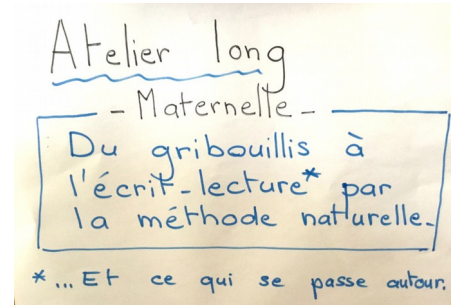 Atelier long
- Maternelle -
Du gribouillis à
l'écrit-lecture* par
la méthode naturelle.
*... Et ce qui se passe autour.